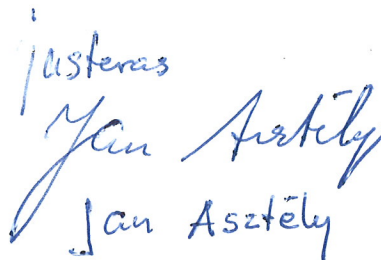 justeras
Jan Asztély
Jan Asztély